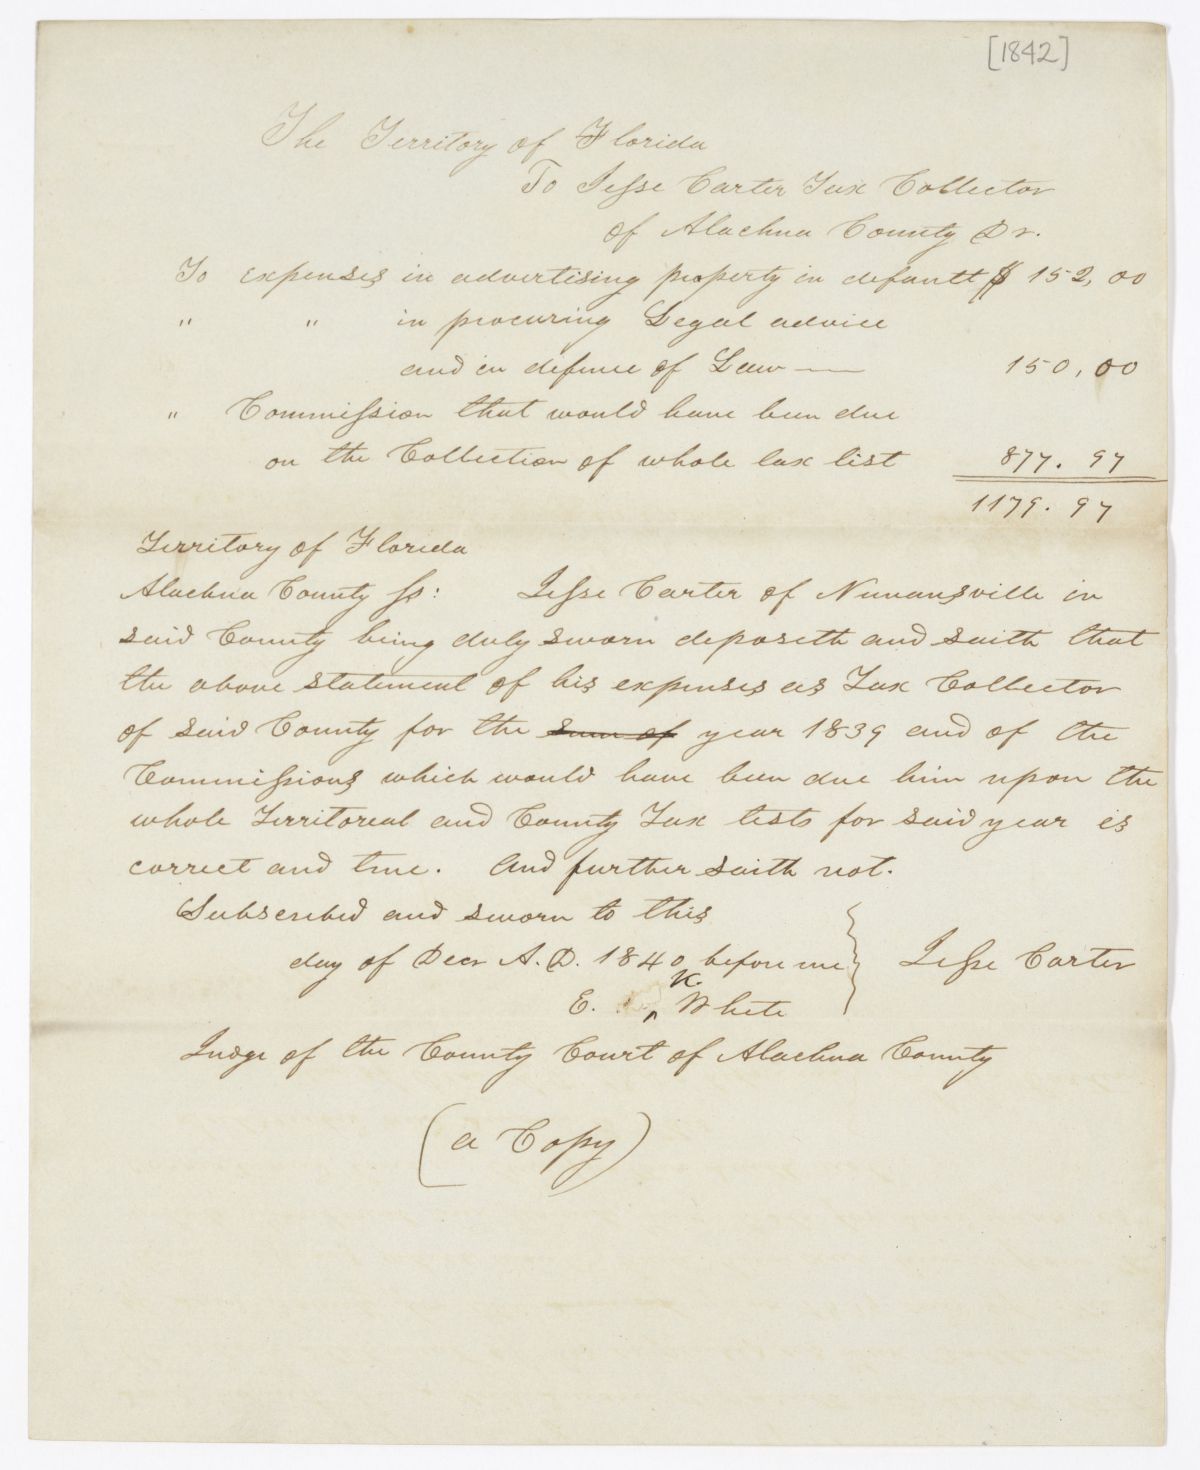 [1842]
The Territory of Florida
To Jesse Carter Tax Collector
of Alachua County Dr.
To expenses in advertising property in default $ 152,00
" " in procuring Legal advice
and in defence of Law — 150,00
" Commission that would have been due
on the Collection of whole tax list 877.97
1179.97
Territory of Florida
Alachua County ss: Jesse Carter of Newnansville in
said County being duly sworn deposeth and saith that
the above statement of his expenses as Tax Collector
of said County for the sum of year 1839 and of the
Commissions which would have been due him upon the
whole Territoreal and County Tax lists for said year is
correct and true. And further saith not.
Subscribed and sworn to this
day of Decr A.D. 1840 before me } Jesse Carter
E. K. White
Judge of the County Court of Alachua County
(a Copy)